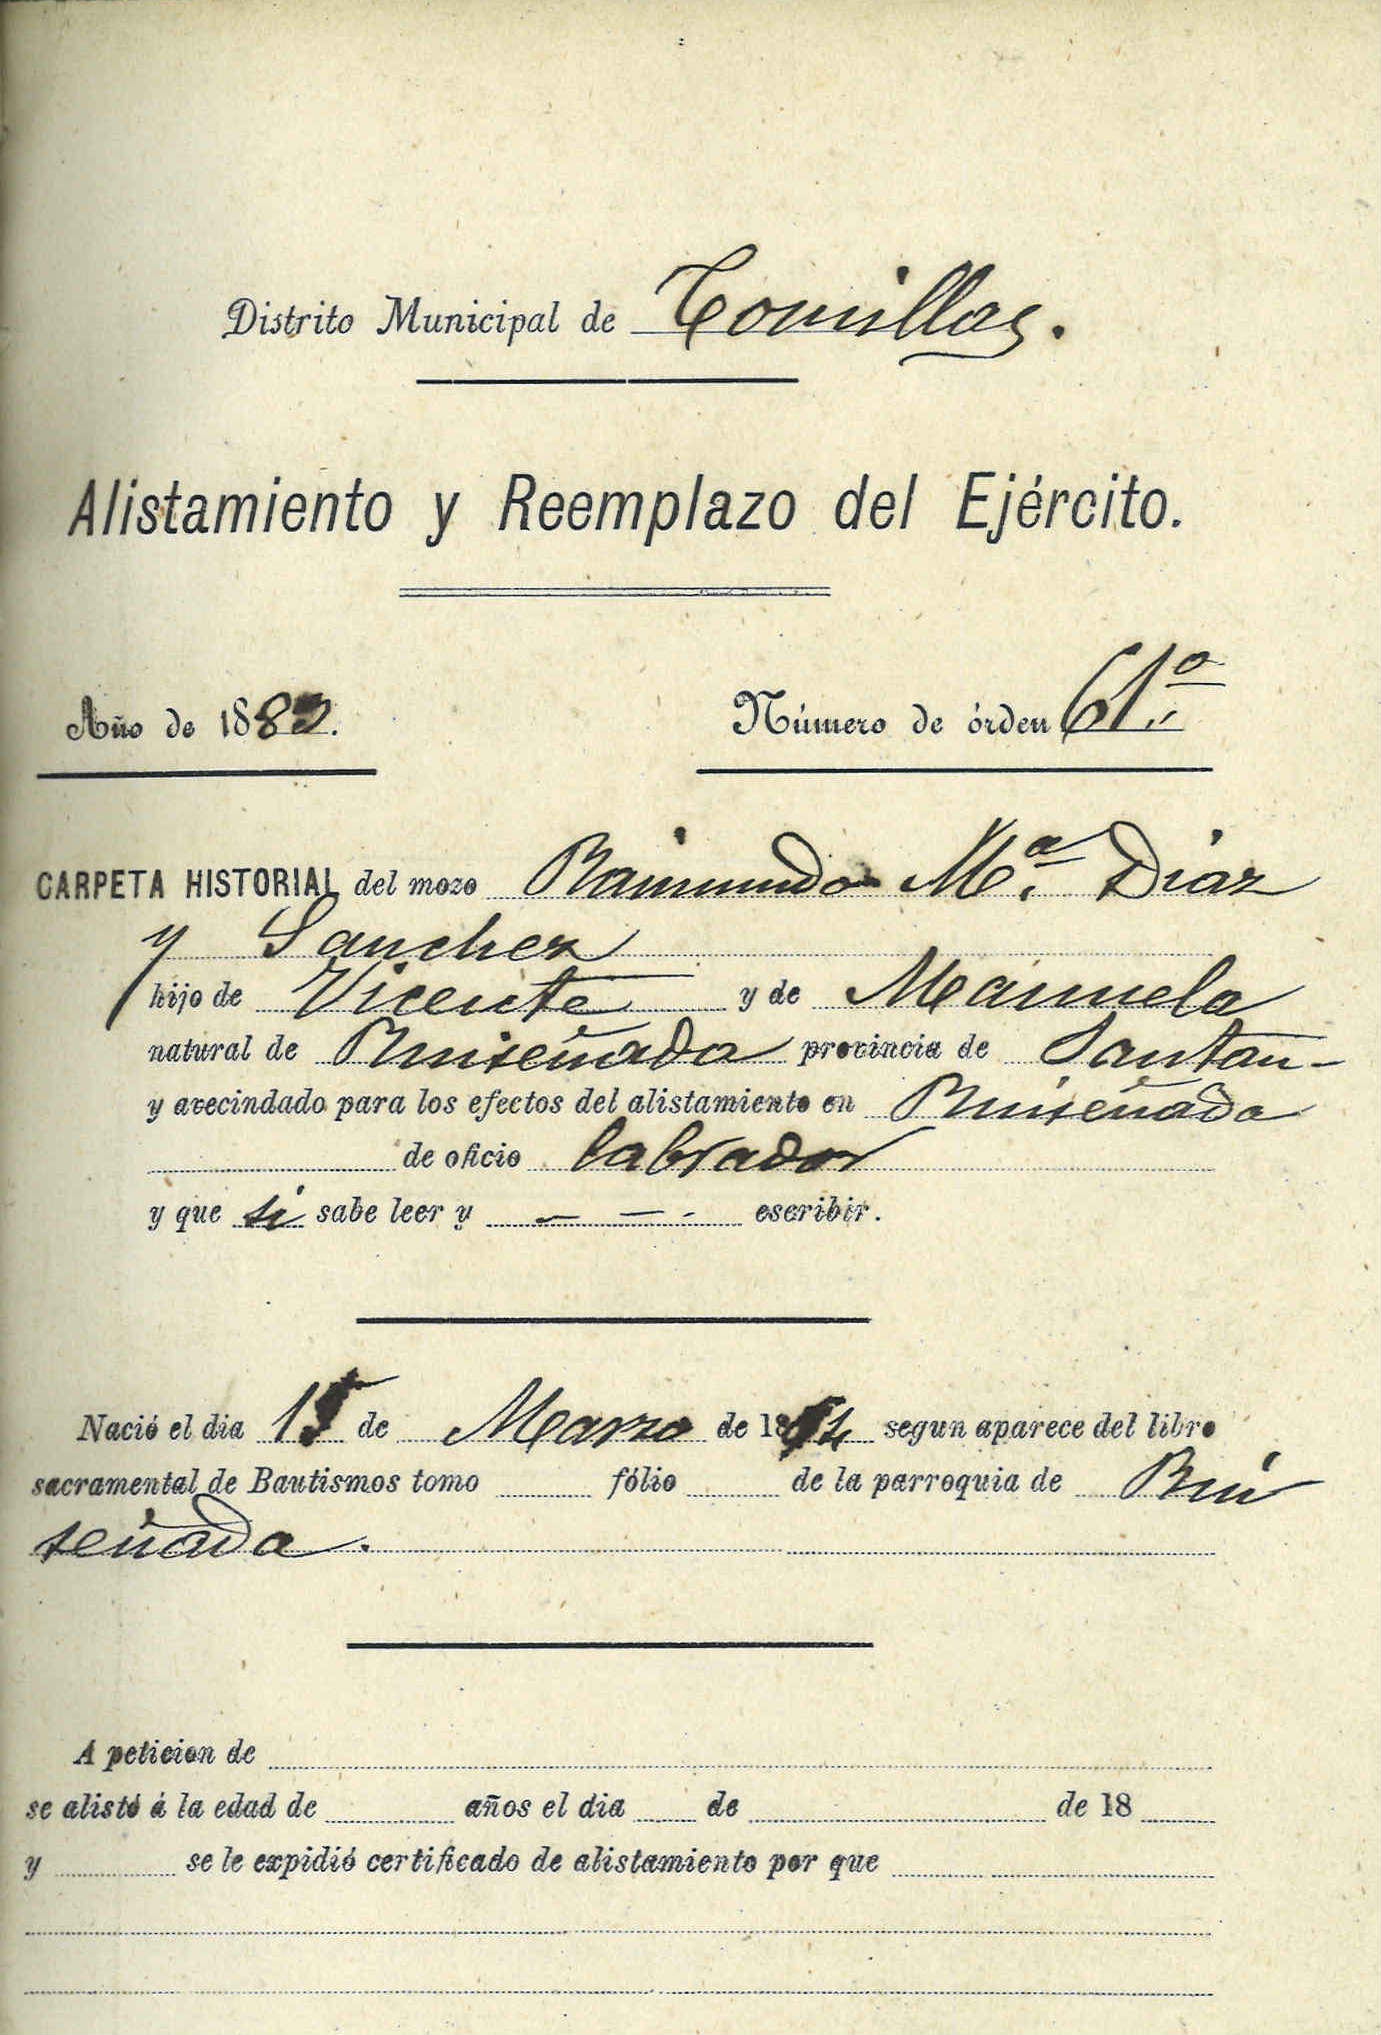 Distrito Municipal de Comillas.
Alistamiento y Reemplazo del Ejército.
Año de 188
Número de órden 61º
CARPETA HISTORIAL del mozo Raimundo Mª Diaz
y Sanchez
hijo de Vicente y de Manuela
natural de Ruiseñada provincia de Santan-
y avecindado para los efectos del alistamiento en Ruiseñada
de oficio labrador
y que si sabe leer y — — - escribir.
Nació el dia de Marzo de 18 segun aparece del libro
sacramental de Bautismos tomo fólio de la parroquia de Rui
señada.
A peticion de
se alistó á la edad de años el dia de de 18
y se le expidió certificado de alistamiento por que